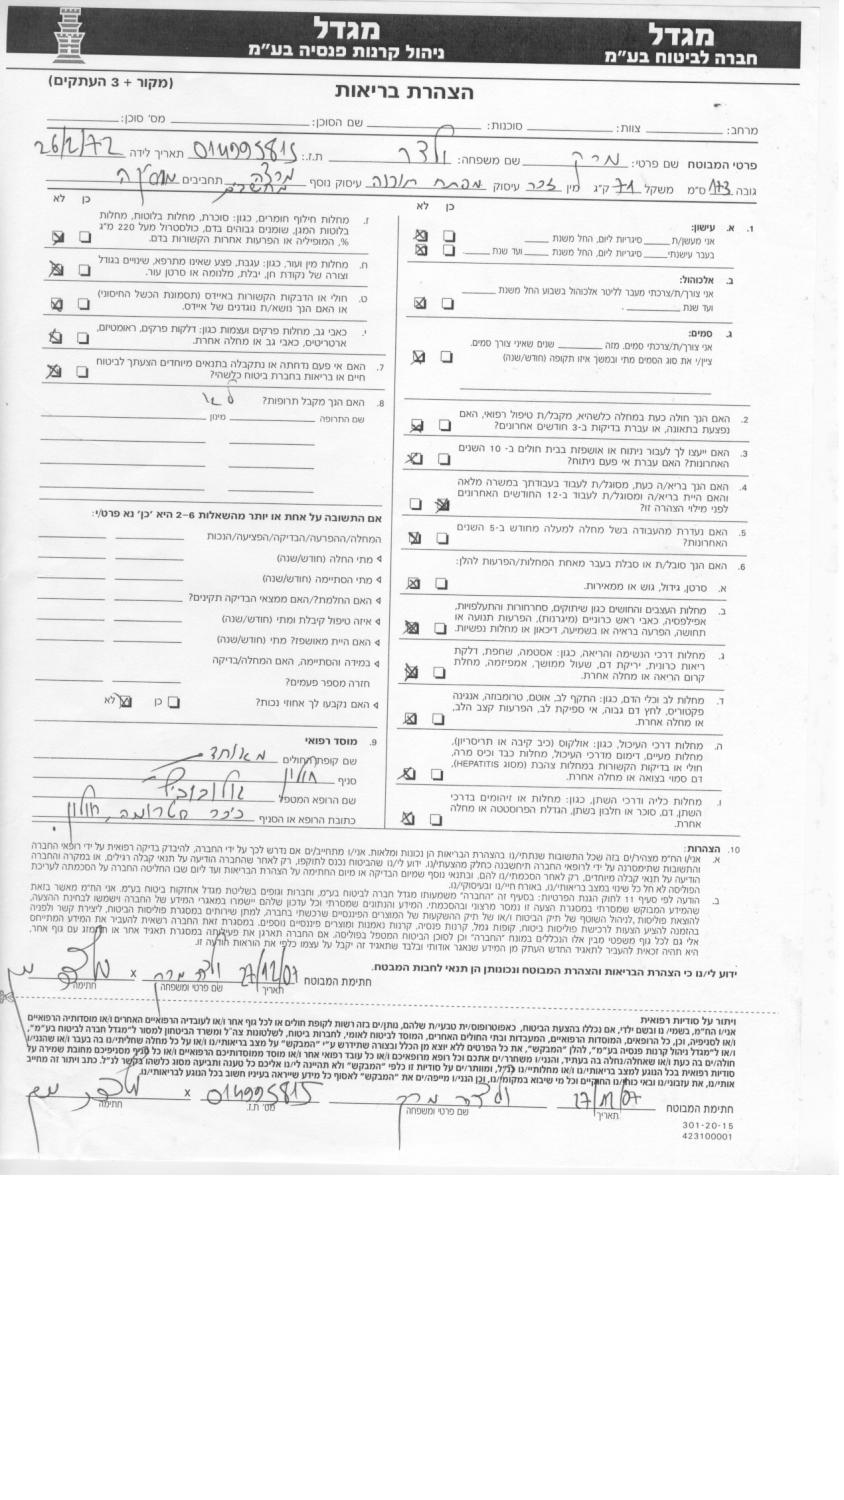 מגדל
חברה לביטוח בע״מ
מגדל
ניהול קרנות פנסיה בע״מ
(מקור + 3 העתקים)
הצהרת בריאות
מרחב: צוות: סוכנות: שם הסוכן: מס׳ סוכן:
פרטי המבוטח שם פרטי: מרק שם משפחה: ולדר ת.ז.: 014995815 תאריך לידה 26/2/72
גובה 173 ס״מ משקל 71 ק״ג מין זכר עיסוק מפתח תוכנה עיסוק נוסף מרצה מחשבים תחביבים מוסיקה
כן לא
1. א. עישון:
אני מעשן/ת סיגריות ליום, החל משנת
בעבר עישנתי סיגריות ליום, החל משנת ועד שנת
ב. אלכוהול:
אני צורך/ת/צרכתי מעבר לליטר אלכוהול בשבוע החל משנת
ועד שנת
ג. סמים:
אני צורך/ת/צרכתי סמים. מזה שנים שאיני צורך סמים.
ציין/י את סוג הסמים מתי ובמשך איזו תקופה (חודש/שנה)
2. האם הנך חולה כעת במחלה כלשהיא, מקבל/ת טיפול רפואי, האם
נפצעת בתאונה, או עברת בדיקות ב-3 חודשים אחרונים?
3. האם ייעצו לך לעבור ניתוח או אושפזת בבית חולים ב- 10 השנים
האחרונות? האם עברת אי פעם ניתוח?
4. האם הנך בריא/ה כעת, מסוגל/ת לעבוד בעבודתך במשרה מלאה
והאם היית בריא/ה ומסוגל/ת לעבוד ב-12 החודשים האחרונים
לפני מילוי הצהרה זו?
5. האם נעדרת מהעבודה בשל מחלה למעלה מחודש ב-5 השנים
האחרונות?
6. האם הנך סובל/ת או סבלת בעבר מאחת המחלות/הפרעות להלן:
א. סרטן, גידול, גוש או ממאירות.
ב. מחלות העצבים והחושים כגון שיתוקים, סחרחורות והתעלפויות,
אפילפסיה, כאבי ראש כרוניים (מיגרנות), הפרעות תנועה או
תחושה, הפרעה בראיה או בשמיעה, דיכאון או מחלות נפשיות.
ג. מחלות דרכי הנשימה והריאה, כגון: אסטמה, שחפת, דלקת
ריאות כרונית, יריקת דם, שעול ממושך, אמפיזמה, מחלת
קרום הריאה או מחלה אחרת.
ד. מחלות לב וכלי הדם, כגון: התקף לב, אוטם, טרומבוזה, אנגינה
פקטוריס, לחץ דם גבוה, אי ספיקת לב, הפרעות קצב הלב,
או מחלה אחרת.
ה. מחלות דרכי העיכול, כגון: אולקוס (כיב קיבה או תריסריון),
מחלות מעיים, דימום מדרכי העיכול, מחלות כבד וכיס מרה,
חולי או בדיקות הקשורות במחלות צהבת (מסוג HEPATITIS),
דם סמוי בצואה או מחלה אחרת.
ו. מחלות כליה ודרכי השתן, כגון: מחלות או זיהומים בדרכי
השתן, דם, סוכר או חלבון בשתן, הגדלת הפרוסטטה או מחלה
אחרת.
כן לא
ז. מחלות חילוף חומרים, כגון: סוכרת, מחלות בלוטות, מחלות
בלוטת המגן, שומנים גבוהים בדם, כולסטרול מעל 220 מ״ג
%, המופיליה או הפרעות אחרות הקשורות בדם.
ח. מחלות מין ועור, כגון: עגבת, פצע שאינו מתרפא, שינויים בגודל
וצורה של נקודת חן, יבלת, מלנומה או סרטן עור.
ט. חולי או הדבקות הקשורות באיידס (תסמונת הכשל החיסוני)
או האם הנך נושא/ת נוגדנים של איידס.
י. כאבי גב, מחלות פרקים ועצמות כגון: דלקות פרקים, ראומטיזם,
ארטריטיס, כאבי גב או מחלה אחרת.
7. האם אי פעם נדחתה או נתקבלה בתנאים מיוחדים הצעתך לביטוח
חיים או בריאות בחברת ביטוח כלשהי?
8. האם הנך מקבל תרופות? לא
שם התרופה מינון
אם התשובה על אחת או יותר מהשאלות 2–6 היא ׳כן׳ נא פרט/י:
המחלה/ההפרעה/הבדיקה/הפציעה/הנכות
מתי החלה (חודש/שנה)
מתי הסתיימה (חודש/שנה)
האם החלמת?/האם ממצאי הבדיקה תקינים?
איזה טיפול קיבלת ומתי (חודש/שנה)
האם היית מאושפז? מתי (חודש/שנה)
במידה והסתיימה, האם המחלה/בדיקה
חזרה מספר פעמים?
האם נקבעו לך אחוזי נכות? כן לא
9. מוסד רפואי
שם קופת חולים מאוחדת
סניף חולון
שם הרופא המטפל
כתובת הרופא או הסניף כיכר חולון
10. הצהרות:
א. אני/ו הח״מ מצהיר/ים בזה שכל התשובות שנתתי/נו בהצהרת הבריאות הן נכונות ומלאות. אני/ו מתחייב/ים אם נדרש לכך על ידי החברה, להיבדק בדיקה רפואית על ידי רופאי החברה
והתשובות שתימסרנה על ידי לרופאי החברה תיחשבנה כחלק מהצעתי/נו. ידוע לי/נו שהביטוח נכנס לתוקפו, רק לאחר שהחברה הודיעה על תנאי קבלה רגילים, או במקרה והחברה
הודיעה על תנאי קבלה מיוחדים, רק לאחר הסכמתי/נו להם, ובתנאי נוסף שמיום הבדיקה או מיום החתימה על הצהרת הבריאות ועד ליום שבו החליטה החברה על הסכמתה לעריכת
הפוליסה לא חל כל שינוי במצב בריאותי/נו, באורח חיי/נו ובעיסוקי/נו.
ב. הודעה לפי סעיף 11 לחוק הגנת הפרטיות: בסעיף זה ״החברה״ משמעותו מגדל חברה לביטוח בע״מ, וחברות וגופים בשליטת מגדל אחזקות ביטוח בע״מ. אני הח״מ מאשר בזאת
שהמידע המבוקש שמסרתי במסגרת הצעה זו נמסר מרצוני ובהסכמתי. המידע והנתונים שמסרתי וכל עדכון שלהם יישמרו במאגרי המידע של החברה וישמשו לבחינת ההצעה,
להוצאת פוליסות, לניהול השוטף של תיק הביטוח ו/או של תיק ההשקעות של המוצרים הפיננסים שרכשתי בחברה, למתן שירותים במסגרת פוליסות הביטוח, ליצירת קשר ולפניה
בהזמנה להציע הצעות לרכישת פוליסות ביטוח, קופות גמל, קרנות פנסיה, קרנות נאמנות ומוצרים פיננסיים נוספים. במסגרת זאת החברה רשאית להעביר את המידע המתייחס
אלי גם לכל גוף משפטי מבין אלו הנכללים במונח ״החברה״ וכן לסוכן הביטוח המטפל בפוליסה. אם החברה תארגן את פעילותה במסגרת תאגיד אחר או תתמזג עם גוף אחר,
היא תהיה זכאית להעביר לתאגיד החדש העתק מן המידע שנאגר אודותי ובלבד שתאגיד זה יקבל על עצמו כלפי את הוראות הודעה זו.
ידוע לי/נו כי הצהרת הבריאות והצהרת המבוטח ונכונותן הן תנאי לחבות המבטח.
חתימת המבוטח 27/12/07 ולדר מרק x
תאריך שם פרטי ומשפחה חתימה
ויתור על סודיות רפואית
אני/ו הח״מ, בשמי/נו ובשם ילדי, אם נכללו בהצעת הביטוח, כאפוטרופוס/ית טבעי/ת שלהם, נותן/ים בזה רשות לקופת חולים או לכל גוף אחר ו/או לעובדיה הרפואיים האחרים ו/או מוסדותיה הרפואיים
ו/או לסניפיה, וכן, כל הרופאים, המוסדות הרפואיים, המעבדות ובתי החולים האחרים, המוסד לביטוח לאומי, לחברות ביטוח, לשלטונות צה״ל ומשרד הביטחון למסור ל״מגדל חברה לביטוח בע״מ״,
ו/או ל״מגדל ניהול קרנות פנסיה בע״מ״, להלן ״המבקש״, את כל הפרטים ללא יוצא מן הכלל ובצורה שתידרש ע״י ״המבקש״ על מצב בריאותי/נו ו/או על כל מחלה שחליתי/נו בה בעבר ו/או שהנני/ו
חולה/ים בה כעת ו/או שאחלה/נחלה בה בעתיד, והנני/ו משחרר/ים אתכם וכל רופא מרופאיכם ו/או כל עובד רפואי אחר ו/או מוסד ממוסדותיכם הרפואיים ו/או כל סניף מסניפיכם מחובת שמירה על
סודיות רפואית בכל הנוגע למצב בריאותי/נו ו/או מחלותיי/נו כנ״ל, ומוותר/ים על סודיות זו כלפי ״המבקש״ ולא תהיינה לי/נו אליכם כל טענה ותביעה מסוג כלשהו בקשר לנ״ל. כתב ויתור זה מחייב
אותי/נו, את עזבוני/נו ובאי כוחי/נו החוקיים וכל מי שיבוא במקומי/נו, וכן הנני/ו מייפה/ים את ״המבקש״ לאסוף כל מידע שייראה בעיניו חשוב בכל הנוגע לבריאותי/נו.
חתימת המבוטח 27/12/07 ולדר מרק 014995815 x
תאריך שם פרטי ומשפחה מס׳ ת.ז. חתימה
301-20-15
423100001